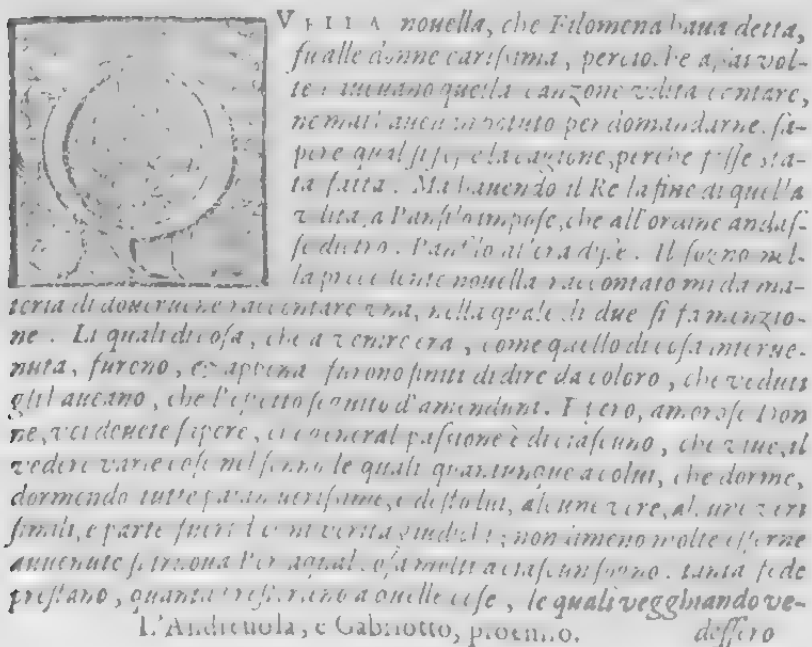 QVELLA nouella, che Filomena haua detta,
fu alle donne carissima, percioche assai vol-
te haueuano quella canzone vdita cantare,
ne mai haueuan potuto per domandarne, sa-
pere qual si fosse la cagione, perche fosse sta-
ta fatta. Ma hauendo il Re la fine di quella
vdita, a Panfilo impose, che all'ordine andas-
se dietro. Panfilo allora disse. Il sogno nel-
la precedente nouella raccontato mi da ma-
teria di doueruene raccontare vna, nella quale di due si fa menzio-
ne. Li quali di cosa, che a venire era, come quello di cosa interue-
nuta, furono, et appena furono finiti di dire da coloro, che veduti
gli haueano, che l'effetto seguito d'amenduni. E però, amorose Don
ne, voi douete sapere, che general passione è di ciascuno, che viue, il
vedere varie cose nel sonno le quali quantunque a colui, che dorme,
dormendo tutte paian verissime, e desto lui, alcune vere, alcune veri
simili, e parte fuori d'ogni verità giudichi; non dimeno molte esserne
auuenute si truoua Per la qual cosa molti a ciascun sogno tanta fede
prestano, quanta presterieno a quelle cose, le quali vegghiando ve-
L'Andreuola, e Gabriotto, proemio. dessero